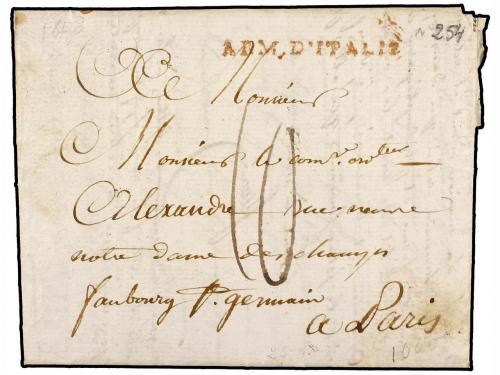 ARM. D'ITALIE
n 254
A Monsieur
Monsieur le com.re
Alexandre rue neuve
notre dame des champs
faubourg St. germain
a Paris